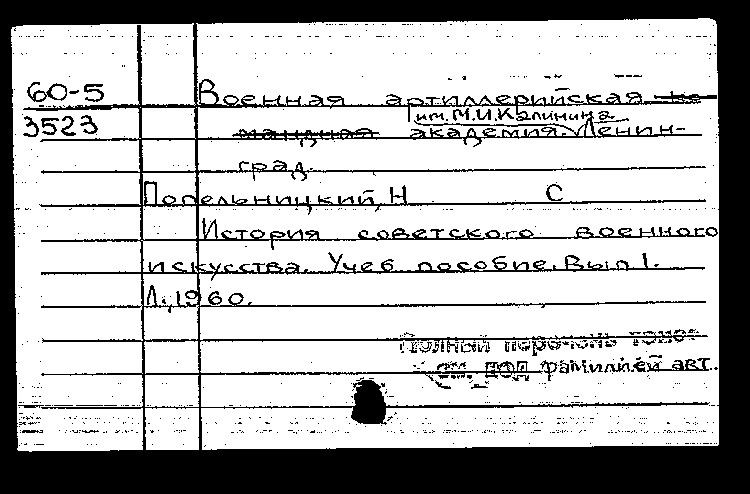 60-5 Военная артиллерийская ко-
3523 мандная академия им. М.И. Калинина. Ленин-
град.
Попельницкий, Н С
История советского военного
искусства. Учеб. пособие. Вып 1.
Л., 1960.
Полный перечень томов
см. под фамилией авт.